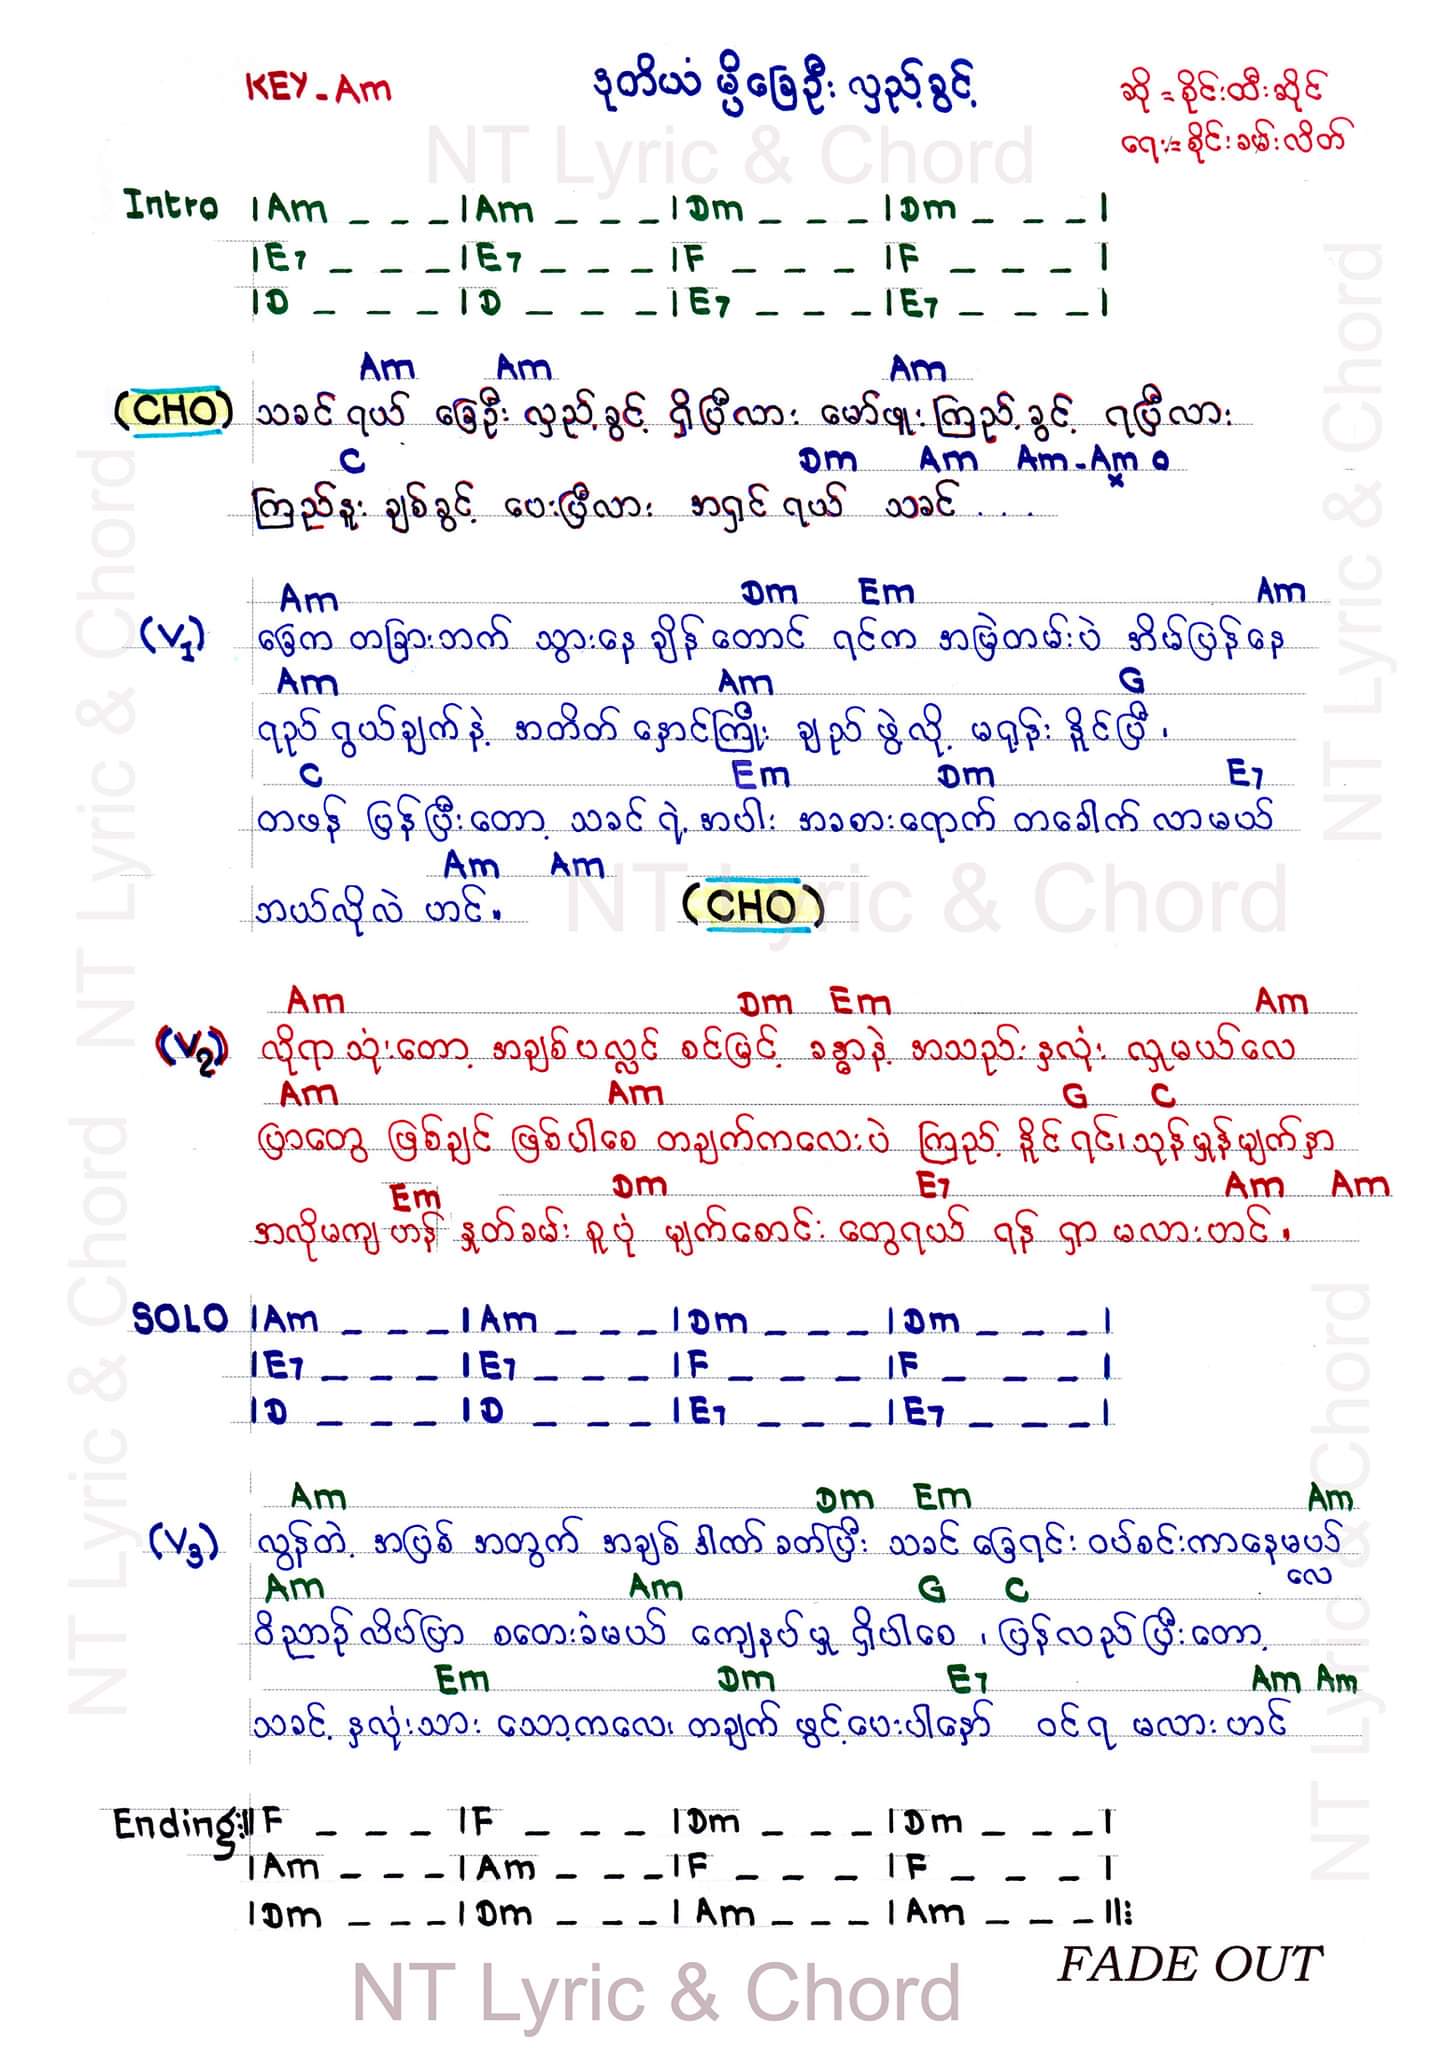 KEY-Am
ဒုတိယံ မ္ပိ ခြေဦး လှည့်ခွင့်
ဆို = စိုင်းထီးဆိုင်
ရေး = စိုင်းခမ်းလိတ်
NT Lyric & Chord
Intro |Am _ _ _|Am _ _ _|Dm _ _ _|Dm _ _ _|
|E7 _ _ _|E7 _ _ _|F _ _ _|F _ _ _|
|D _ _ _|D _ _ _|E7 _ _ _|E7 _ _ _|
Am Am Am
(CHO) သခင် ရယ် ခြေဦး လှည့်ခွင့် ရှိပြီလား မော်ဖူးကြည့်ခွင့် ရပြီလား
C Dm Am Am-Am o
x
ကြည်နူး ချစ်ခွင့် ပေးပြီလား အရှင် ရယ် သခင် . . .
Am Dm Em Am
(V1) ခြေက တခြားဘက် သွားနေချိန်တောင် ရင်က အမြဲတမ်းပဲ အိမ်ပြန်နေ
Am Am G
ရည်ရွယ်ချက်နဲ့ အတိတ် နှောင်ကြိုး ချည်ဖွဲ့လို့ မရုန်းနိူင်ပြီ ၊
C Em Dm E7
တဖန် ပြန်ပြီးတော့ သခင်ရဲ့ အပါး အခစားရောက် တခေါက် လာမယ်
Am Am
ဘယ်လိုလဲ ဟင် ။ (CHO)
NT Lyric & Chord
Am Dm Em Am
(V2) လိုရာသုံးတော့ အချစ်ပလ္လင် စင်မြင့် ခန္ဓာနဲ့ အသည်းနှလုံး လှူမယ်လေ
Am Am G C
ပြာတွေ ဖြစ်ချင် ဖြစ်ပါစေ တချက်ကလေးပဲ ကြည့်နိူင်ရင်၊ သုန်မှုန်မျက်နှာ
Em Dm E7 Am Am
အလိုမကျဟန် နှုတ်ခမ်းစူပုံ မျက်စောင်းတွေရယ် ရန် ရှာ မလားဟင် ။
SOLO |Am _ _ _|Am _ _ _|Dm _ _ _|Dm _ _ _|
|E7 _ _ _|E7 _ _ _|F _ _ _|F _ _ _|
|D _ _ _|D _ _ _|E7 _ _ _|E7 _ _ _|
Am Dm Em Am
(V3) လွန်တဲ့ အပြစ် အတွက် အချစ်ဒါဏ်ခတ်ပြီး သခင် ခြေရင်း ဝပ်စင်းကာနေမယ်
လေ
Am Am G C
ဝိညာဉ်လိပ်ပြာ စတေးခံမယ် ကျေနပ်မှု ရှိပါစေ ၊ ပြန်လည်ပြီးတော့
Em Dm E7 Am Am
သခင့်နှလုံးသား သော့ကလေး တချက် ဖွင့်ပေးပါနော် ဝင်ရ မလားဟင်
Ending:||F _ _ _|F _ _ _|Dm _ _ _|Dm _ _ _|
|Am _ _ _|Am _ _ _|F _ _ _|F _ _ _|
|Dm _ _ _|Dm _ _ _|Am _ _ _|Am _ _ _||:
FADE OUT
NT Lyric & Chord
NT Lyric & Chord
NT Lyric & Chord
NT Lyric & Chord
NT Lyric & Chord